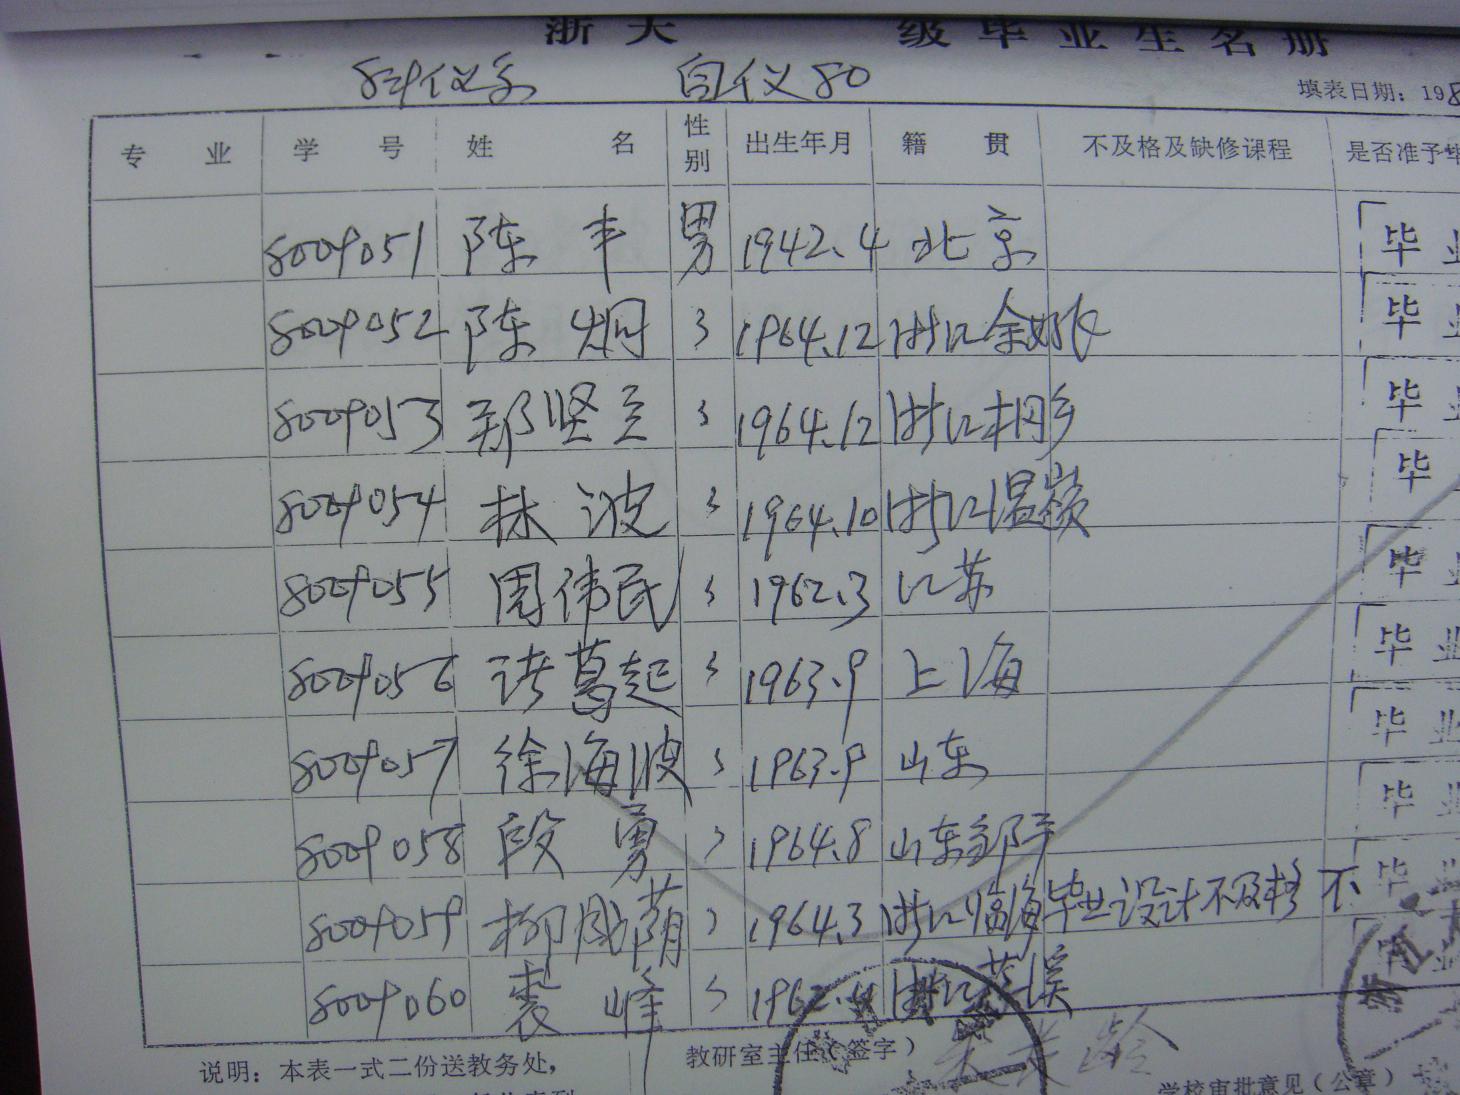 浙大 级毕业生名册
科仪系 自仪80
填表日期：198
专业 学号 姓名 性别 出生年月 籍贯 不及格及缺修课程 是否准予毕
8009051 陈丰 男 1942.4 北京 毕业
8009052 陈炯 〃 1964.12 浙江余姚 毕业
8009053 郑坚立 〃 1964.12 浙江桐乡 毕业
8009054 林波 〃 1964.10 浙江温岭 毕业
8009055 周伟民 〃 1962.3 江苏 毕业
8009056 诸葛起 〃 1963.9 上海 毕业
8009057 徐海波 〃 1963.9 山东 毕业
8009058 段勇 〃 1964.8 山东邹平 毕业
8009059 柳成荫 〃 1964.3 浙江临海 毕业设计不及格 不 毕业
8009060 裘峰 〃 1962. 浙江 毕业
说明：本表一式二份送教务处，
教研室主任（签字）
学校审批意见（公章）